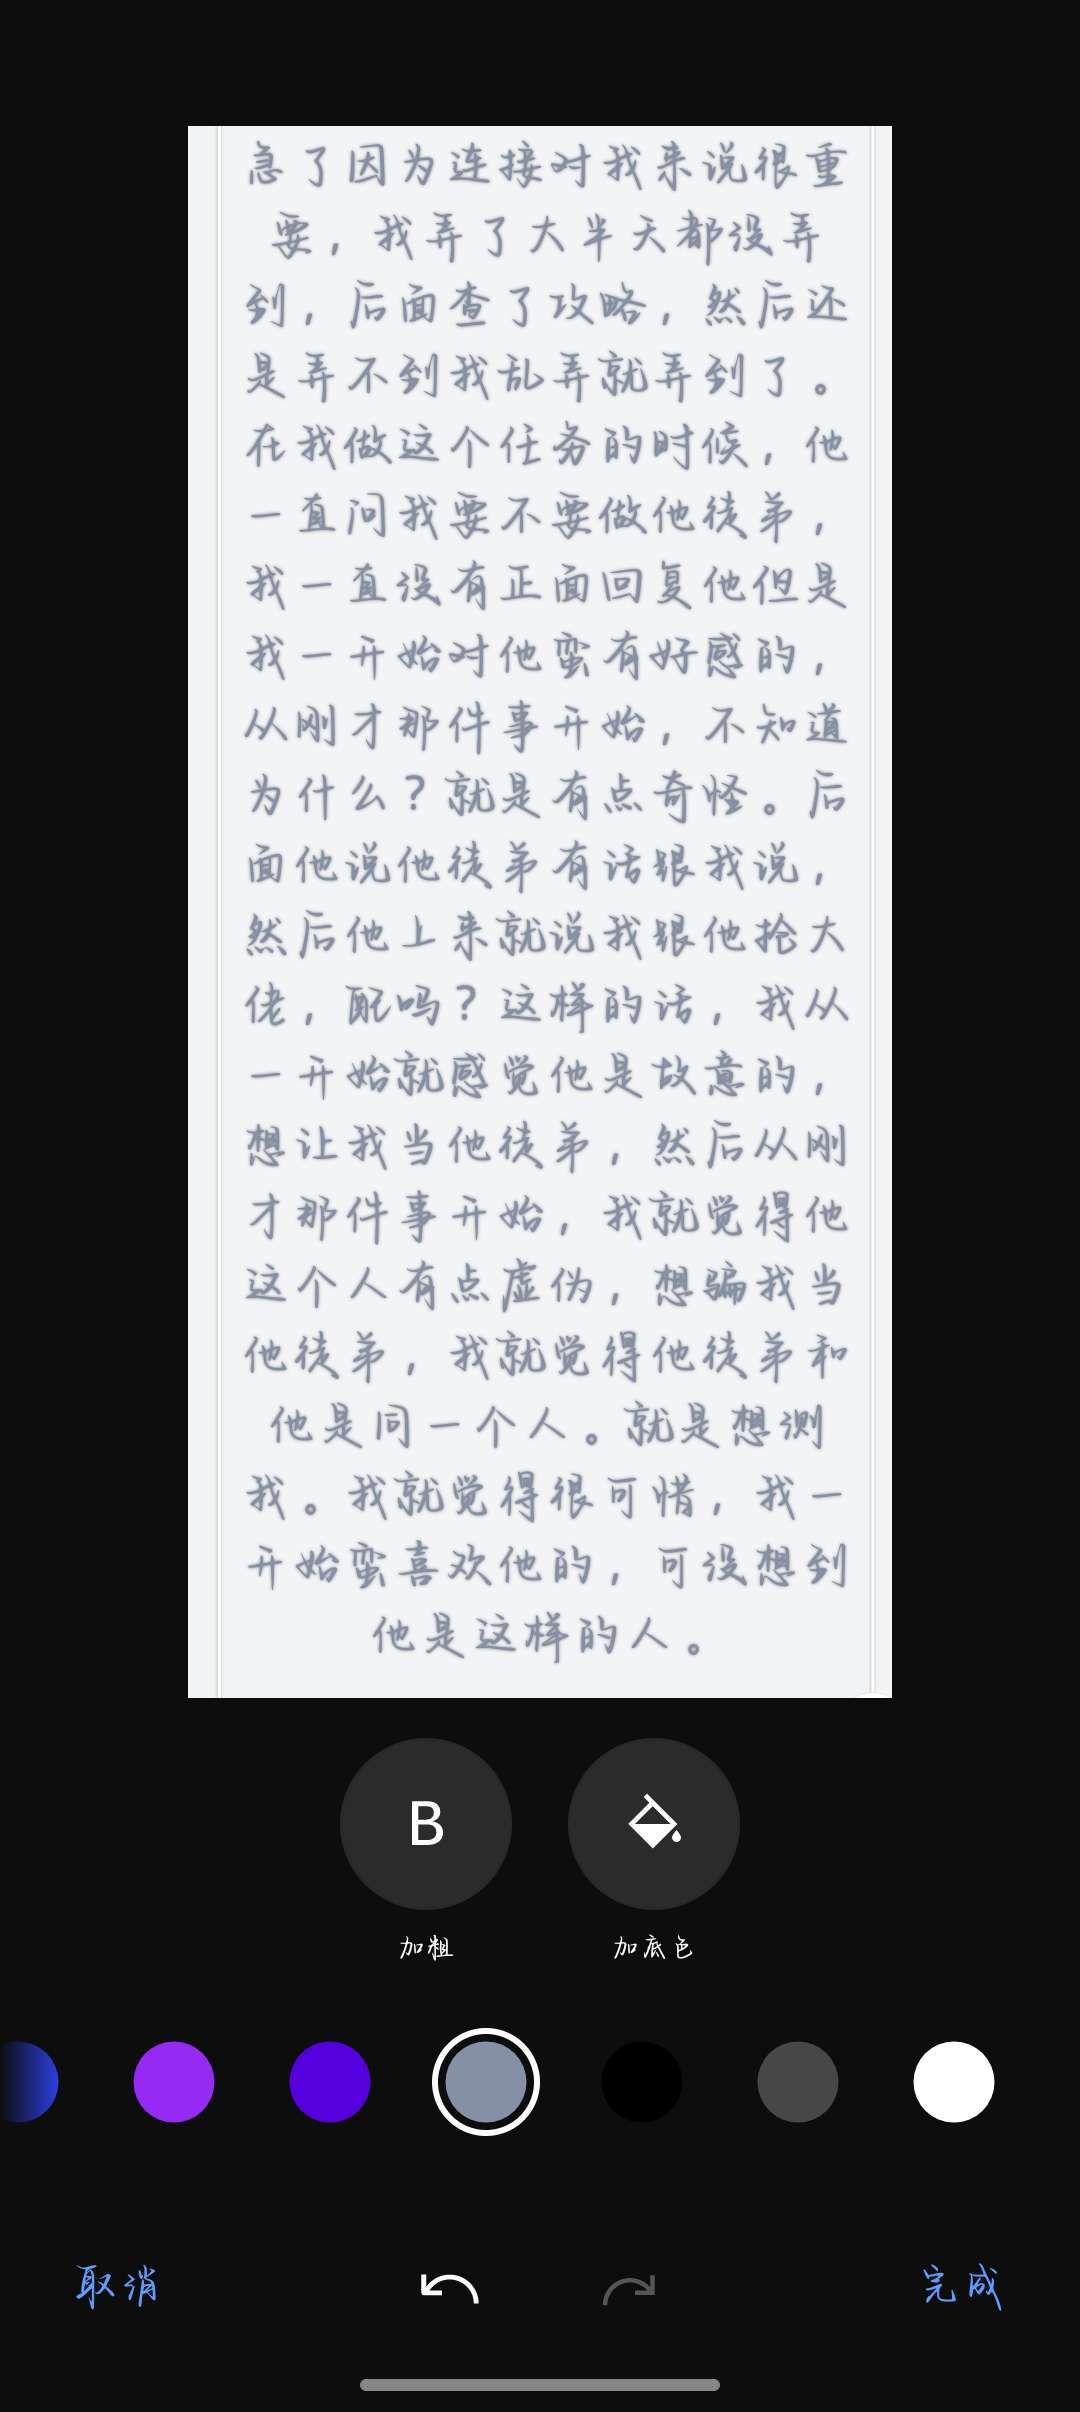 急了因为连接对我来说很重
要，我弄了大半天都没弄
到，后面查了攻略，然后还
是弄不到我乱弄就弄到了。
在我做这个任务的时候，他
一直问我要不要做他徒弟，
我一直没有正面回复他但是
我一开始对他蛮有好感的，
从刚才那件事开始，不知道
为什么？就是有点奇怪。后
面他说他徒弟有话跟我说，
然后他上来就说我跟他抢大
佬，配吗？这样的话，我从
一开始就感觉他是故意的，
想让我当他徒弟，然后从刚
才那件事开始，我就觉得他
这个人有点虚伪，想骗我当
他徒弟，我就觉得他徒弟和
他是同一个人。就是想测
我。我就觉得很可惜，我一
开始蛮喜欢他的，可没想到
他是这样的人。
B
加粗 加底色
取消 完成